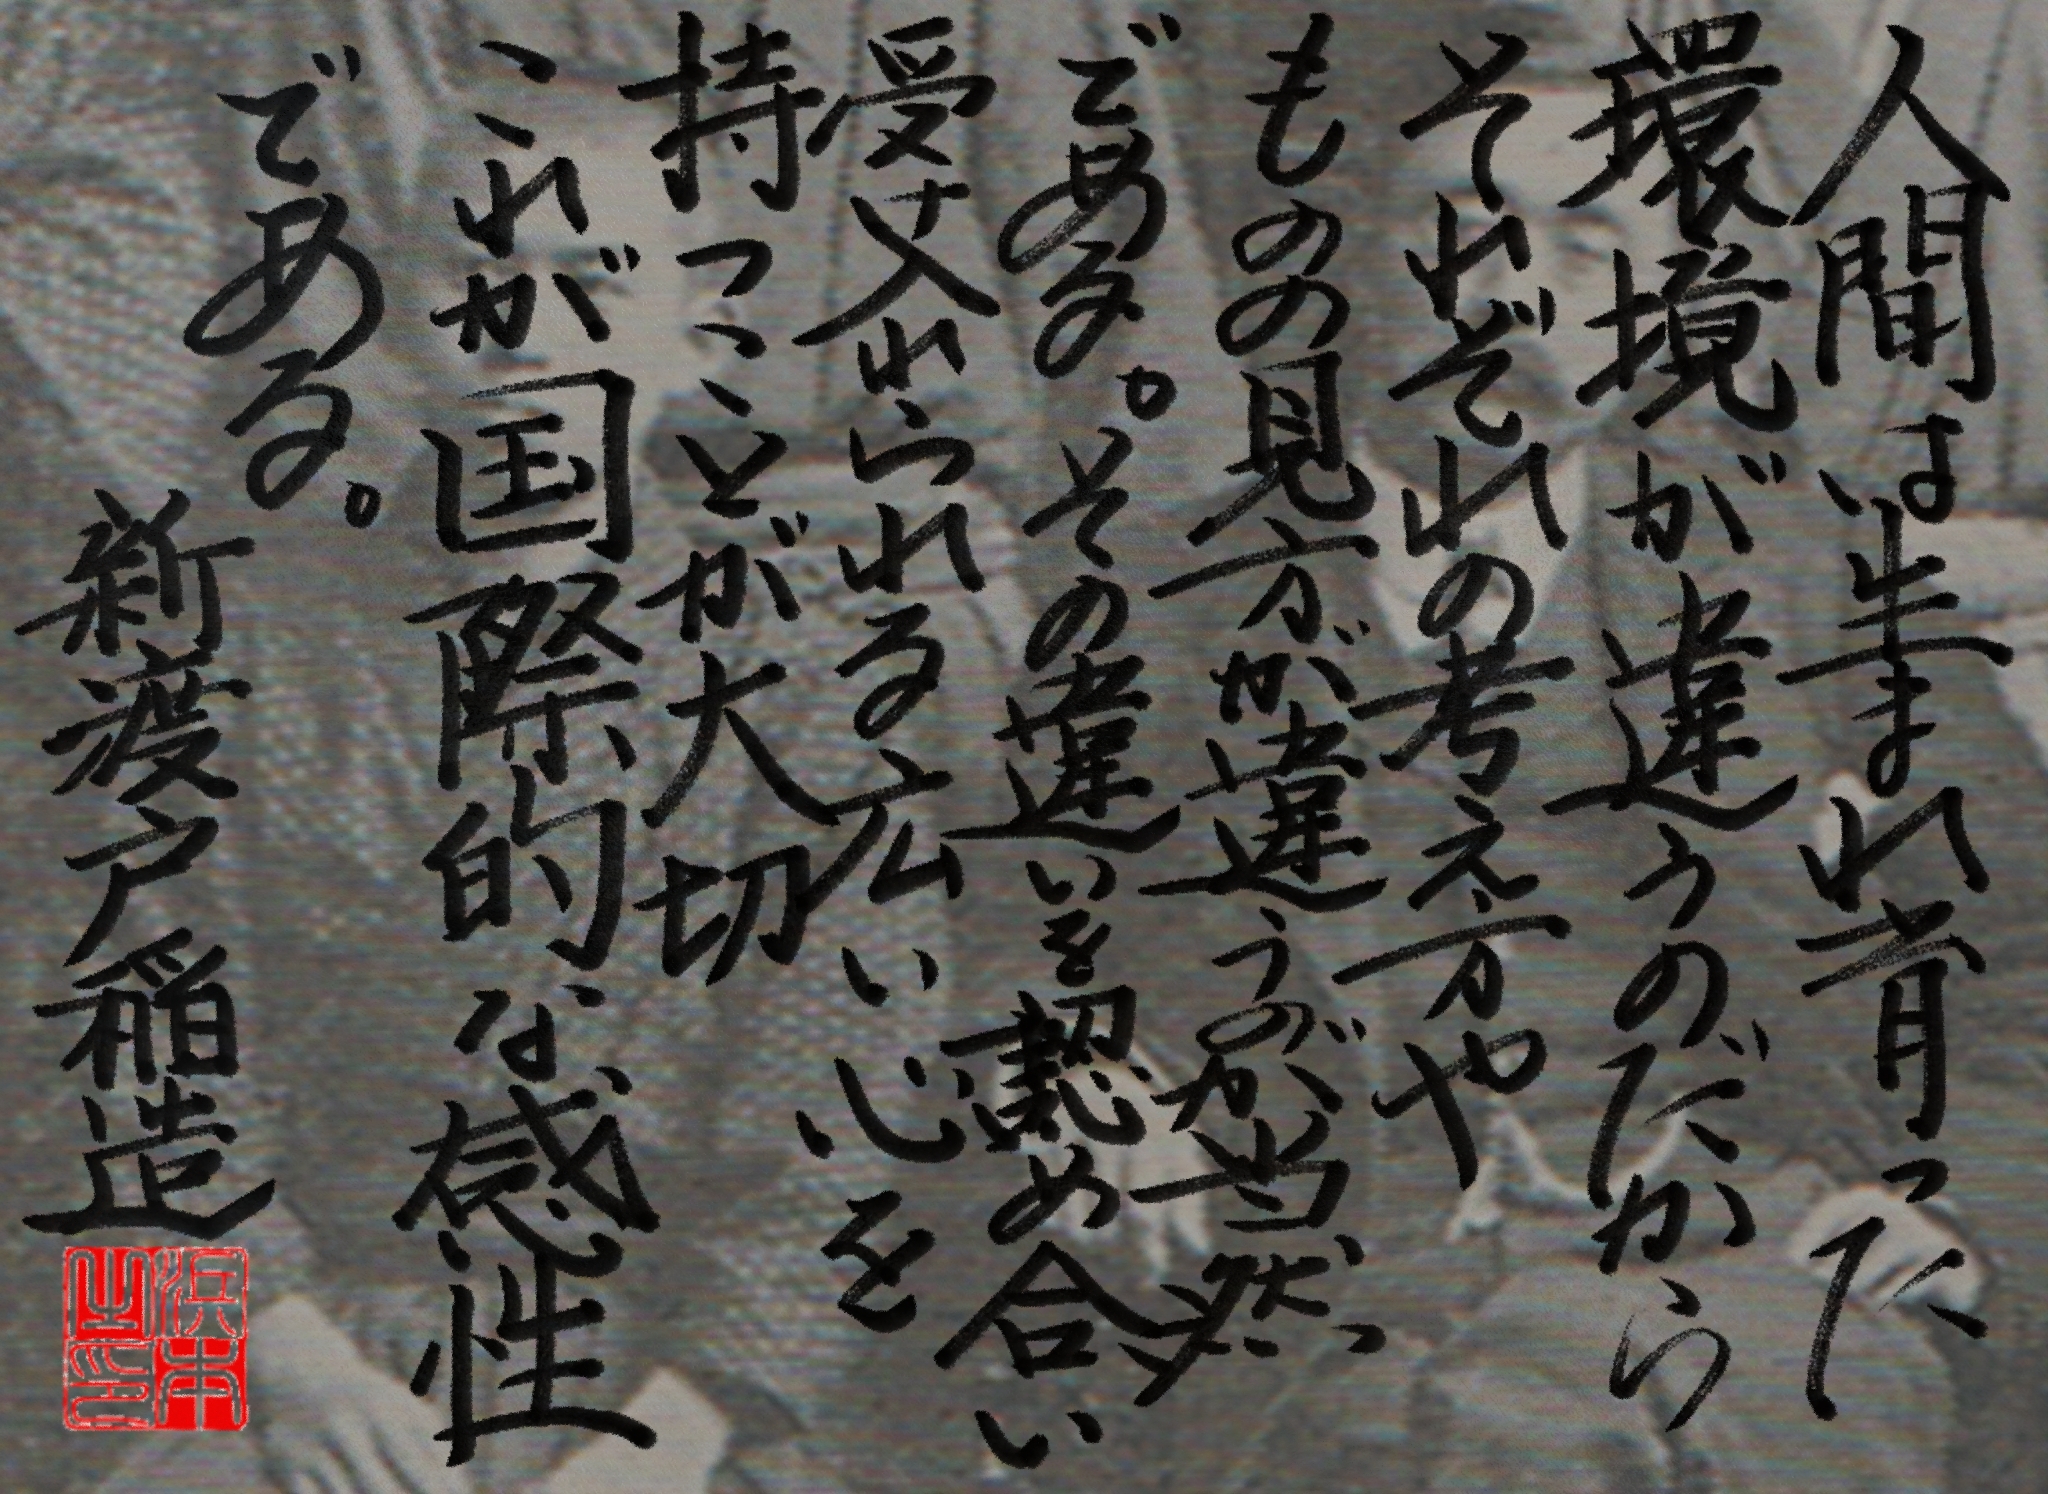 人間は生まれ育った
環境が違うのだから
それぞれの考え方や
ものの見方が違うのが当然
である。その違いを認め合い
受け入れられる広い心を
持つことが大切
これが国際的な感性
である。
新渡戸稲造
浜本之印